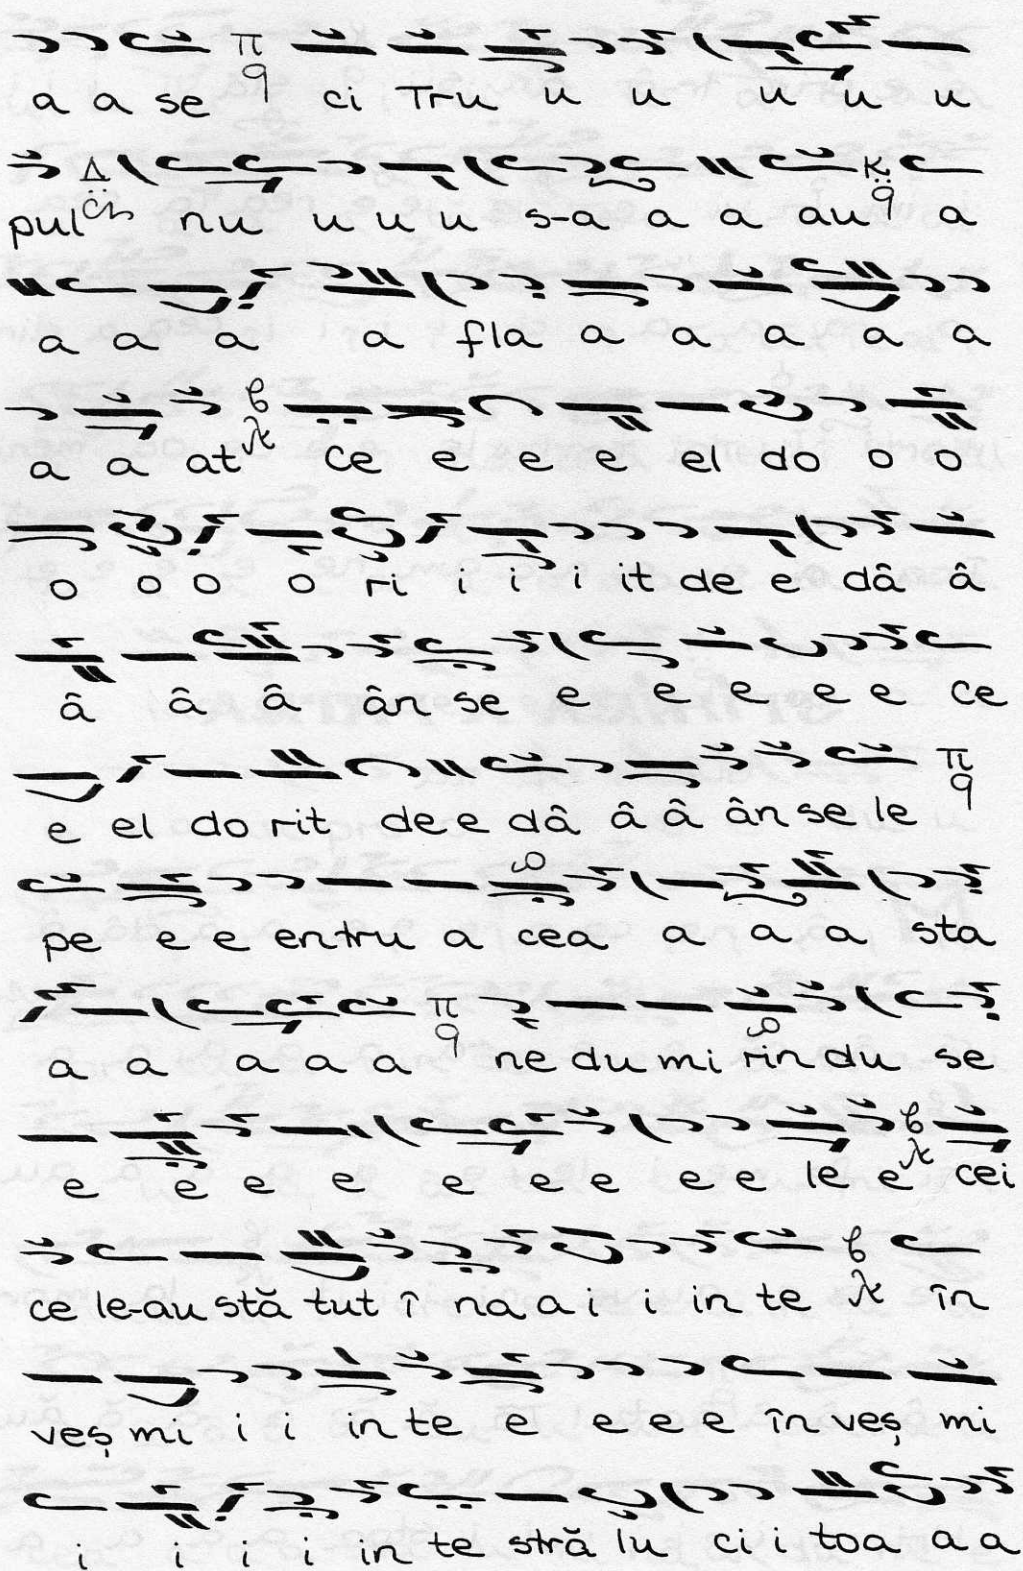 a a se ci Tru u u u u u
pul nu u u u s-a a a au a
a a a a fla a a a a a
a a at ce e e e el do o o
o o o o ri i i i it de e dâ â
â â â ân se e e e e e ce
e el do rit de e dâ â â ân se le
pe e e entru a cea a a a sta
a a a a a ne du mi rin du se
e e e e e e e e e le e cei
ce le-au stă tut î na a i i in te în
veș mi i i in te e e e e în veș mi
i i i i in te stră lu ci i toa a a